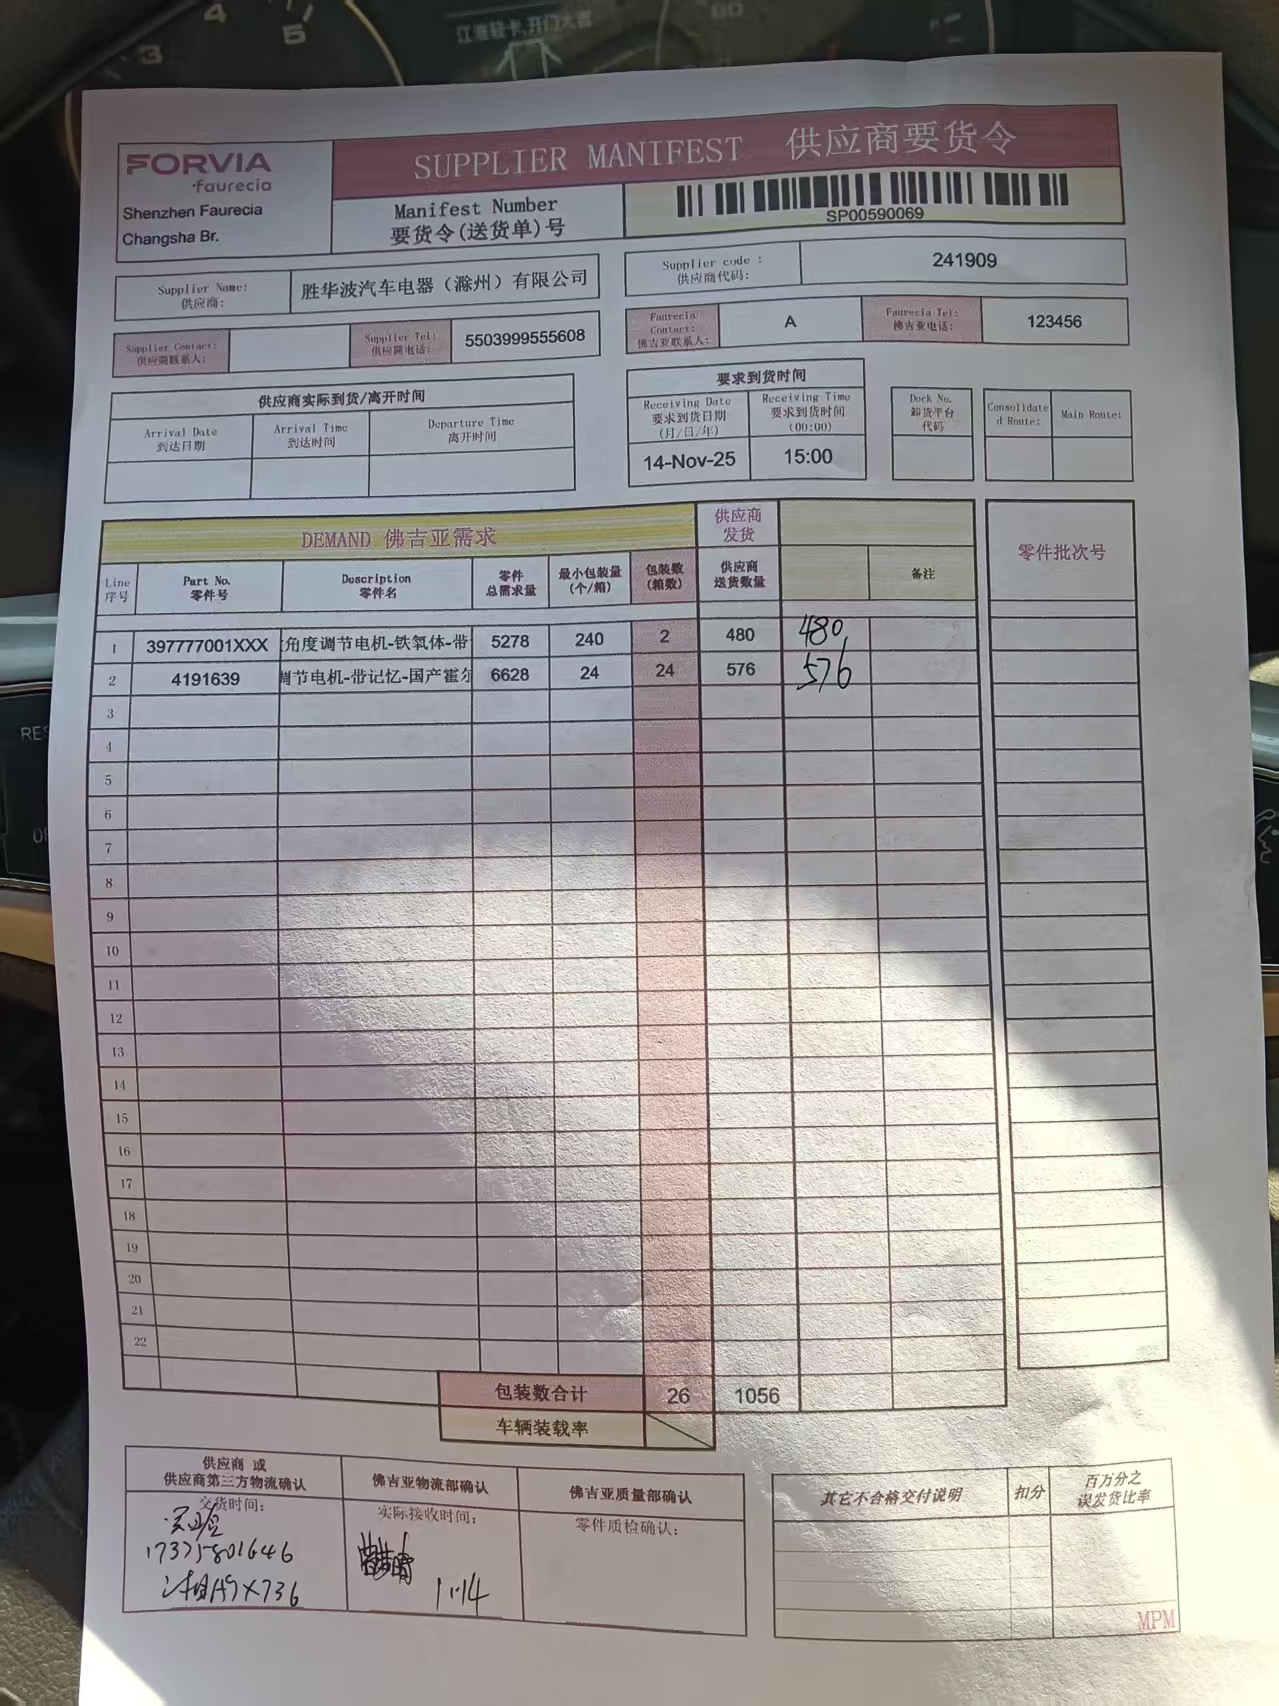 3
4
5
江淮轻卡,开门大吉
80
FORVIA
faurecia
Shenzhen Faurecia
Changsha Br.
SUPPLIER MANIFEST 供应商要货令
Manifest Number
要货令(送货单)号
SP00590069
Supplier Name:
供应商:
胜华波汽车电器（滁州）有限公司
Supplier code :
供应商代码:
241909
Supplier Contact:
供应商联系人:
Supplier Tel:
供应商电话:
5503999555608
Faurecia
Contact:
佛吉亚联系人:
A
Faurecia Tel:
佛吉亚电话:
123456
供应商实际到货/离开时间
Arrival Date
到达日期
Arrival Time
到达时间
Departure Time
离开时间
要求到货时间
Receiving Date
要求到货日期
(月/日/年)
Receiving Time
要求到货时间
(00:00)
14-Nov-25
15:00
Dock No.
卸货平台
代码
Consolidate
d Route:
Main Route:
DEMAND 佛吉亚需求
供应商
发货
零件批次号
Line
序号
Part No.
零件号
Description
零件名
零件
总需求量
最小包装量
(个/箱)
包装数
(箱数)
供应商
送货数量
备注
1 397777001XXX 角度调节电机-铁氧体-带 5278 240 2 480 480
2 4191639 调节电机-带记忆-国产霍尔 6628 24 24 576 576
3
4
5
6
7
8
9
10
11
12
13
14
15
16
17
18
19
20
21
22
包装数合计 26 1056
车辆装载率
供应商 或
供应商第三方物流确认
交货时间:
17375801646
湘A9X736
佛吉亚物流部确认
实际接收时间:
11.14
佛吉亚质量部确认
零件质检确认:
其它不合格交付说明
扣分
百万分之
误发货比率
MPM
RES